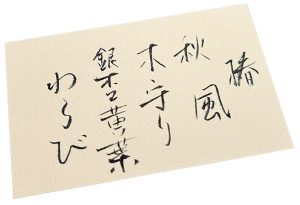 椿
秋風
木守り
銀杏黄葉
わらび